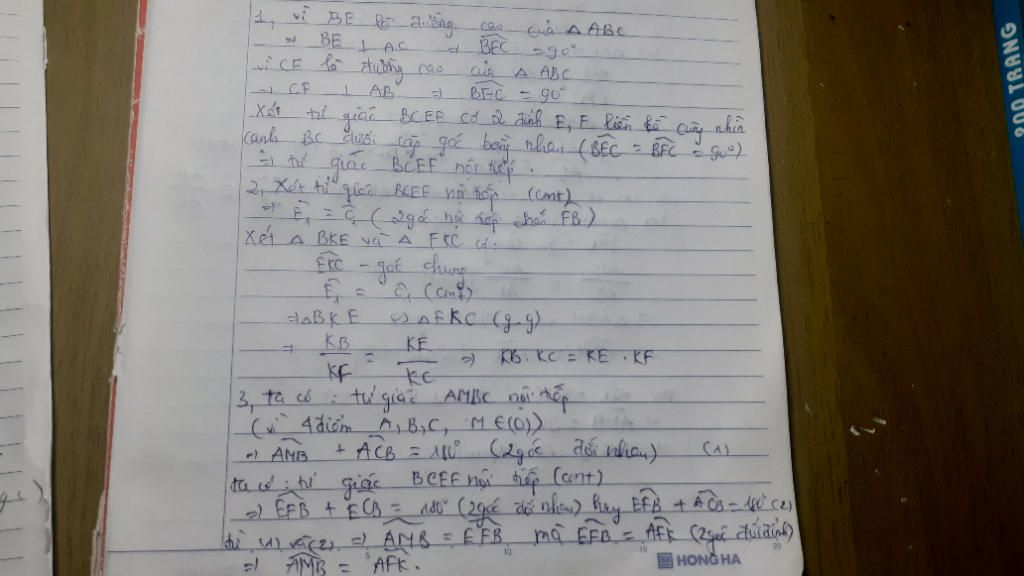 1, vì BE là đường cao của △ ABC
⇒ BE ⊥ AC ⇒ BEC = 90°
vì CF là đường cao của △ ABC
⇒ CF ⊥ AB ⇒ BFC = 90°
Xét tứ giác BCEF có 2 đỉnh E, F liên kề cùng nhìn
cạnh BC dưới cặp góc bằng nhau (BEC = BFC = 90°)
⇒ tứ giác BCEF nội tiếp.
2, Xét tứ giác BCEF nội tiếp (cmt)
⇒ E₁ = C₁ (2 góc nội tiếp chắn FB)
Xét △ BKE và △ FKC có:
EKC - góc chung
E₁ = C₁ (cmt)
⇒ △BKE ∽ △FKC (g.g)
⇒ KB/KF = KE/KC ⇒ KB . KC = KE . KF
3, ta có : tứ giác AMBC nội tiếp
(vì 4 điểm A, B, C, M ∈ (O))
⇒ AMB + ACB = 180° (2 góc đối nhau) (1)
ta có : tứ giác BCEF nội tiếp (cmt)
⇒ EFB + ECB = 180° (2 góc đối nhau) hay EFB + ACB = 180° (2)
từ (1) và (2) ⇒ AMB = EFB mà EFB = AFK (2 góc đối đỉnh)
⇒ AMB = AFK.
HONG HA
200 TRANG